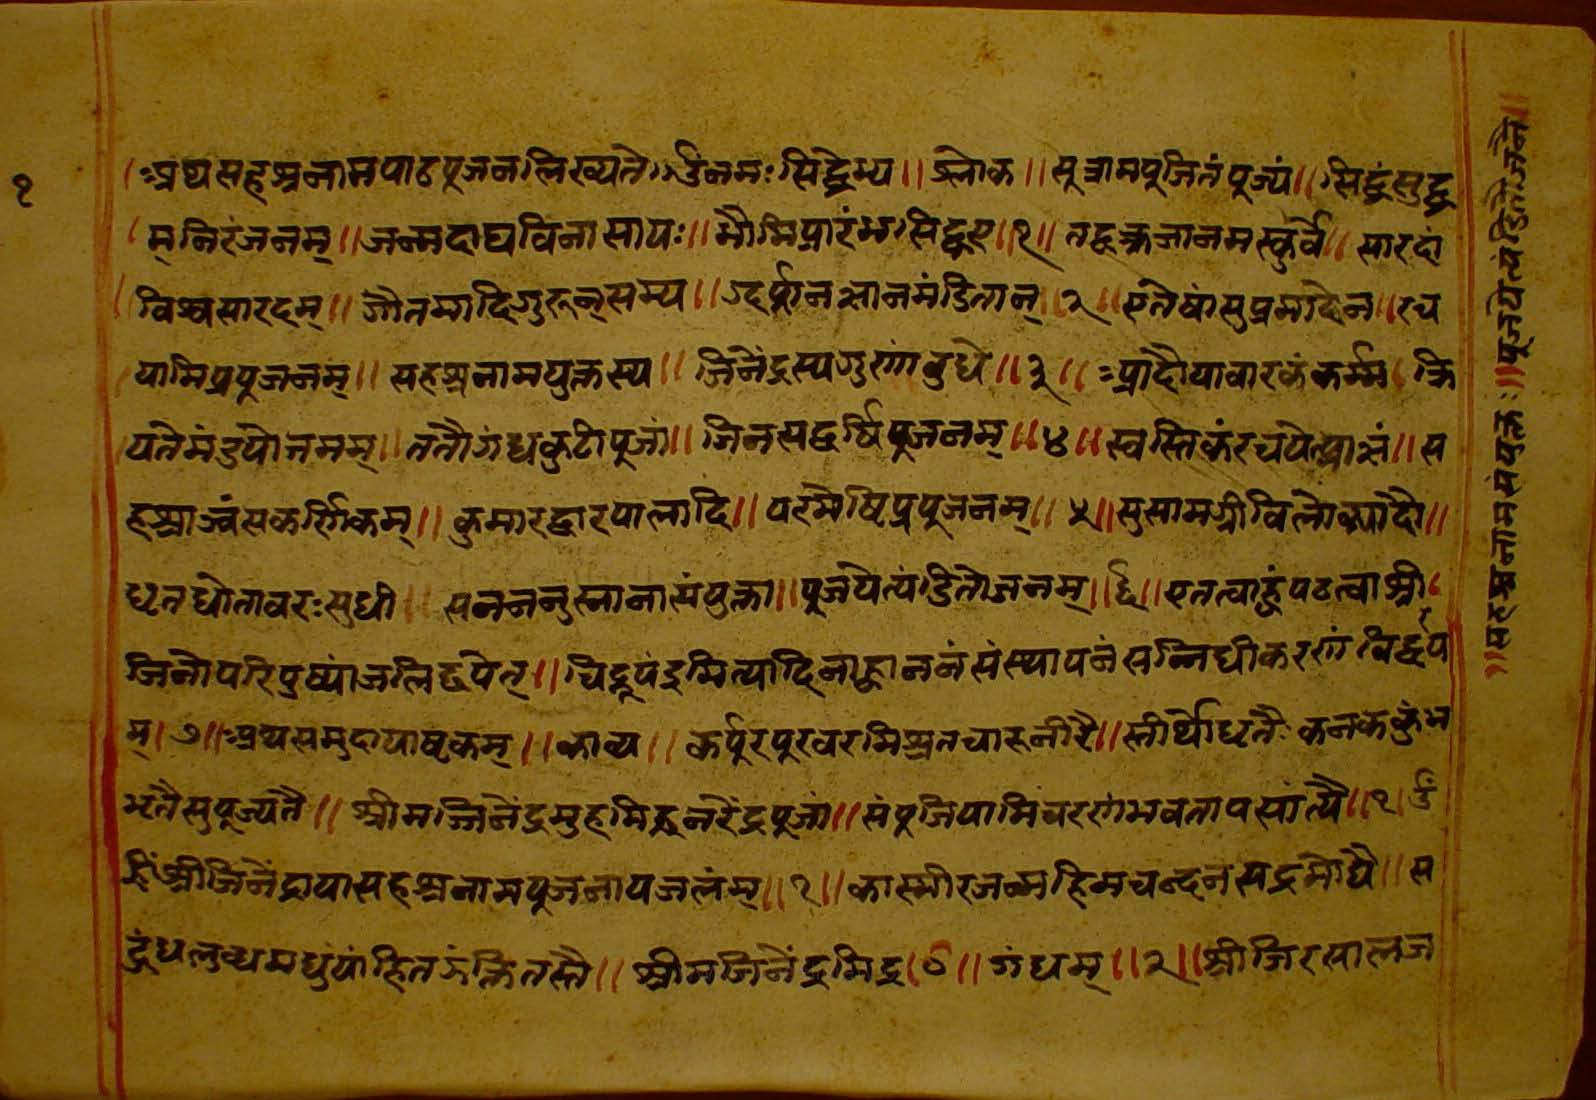 १
।अथ सहश्रनामपाठपूजनलिख्यते। ॐनमः सिद्धेभ्य॥ श्लोक॥ सूत्रामपुजितं पूज्यं॥ सिद्धंसुद्ध
म् निरंजनम्॥ जन्मदाघविनासायः॥ नौमिप्रारंभसिद्धए॥१॥ तद्वक्रजानमस्कुर्वे॥ सारदां
विश्वसारदम्॥ गौतमादिगुरून्सम्य॥ग्दर्प्शनज्ञानमंडितान्॥२॥ एतेषांसुप्रमादेन॥ रच
यामिप्रपुजननम्॥ सहश्रनामयुक्तस्य॥ जिनेंद्रस्यगुणांबुधे॥३॥ आदौयावारकंकर्म्म। क्रि
यतेमंडपोत्तमम्॥ ततौगंधकुटीपूजां॥ जिनसद्वर्षिपूजनम्॥४॥ स्वस्तिकंरचयेत्प्राज्ञं॥ स
हश्राज्वंसकर्णिकम्॥ कुमारद्वारपालादि॥ परमेष्ठिप्रपूजनम्॥५॥ सुसामग्रीविलोक्यादौ॥
धृतधोतावरःसुधी॥ सनननुस्नानासंयुक्ता॥ पूजयेत्यंडितोजनम्॥६॥ एतत्वाठुंपठत्वाश्री
जिनोपरिपुष्पांजलिद्वपेत्॥ चिद्रूपंइमित्यादिनाह्वाननंसंस्थापनंसन्निधीकरणं
म्।७॥ अथसमुदायाष्टकम्॥ काव्य॥ कर्पूरपुरवरमिश्रतचारुनीरै॥ स्तीर्थोधृतैः कनककुंभ
भृतैसुपूज्यतै॥ श्रीमज्जिनेंद्रमुहमिद्धनरेंद्रपुजां॥ संपुजियामिवरणंभवतापस्यांत्यै॥१। ॐ
ह्रिंश्रीजिनेंद्रायासहश्रनामपूजनायजलंम्॥१॥ कास्मीरजन्महिमचन्दनसद्रमौधै॥ स
द्गंधलुब्धमधुंपांहितऊंक्रितस्तै॥ श्रीमजिनेंद्रमिद्र।ठ॥ गंधम्॥२॥ श्रीजिरसालज
॥सहश्रनामसंयुक्तः॥ पूजयेत्यंडितोजनै॥